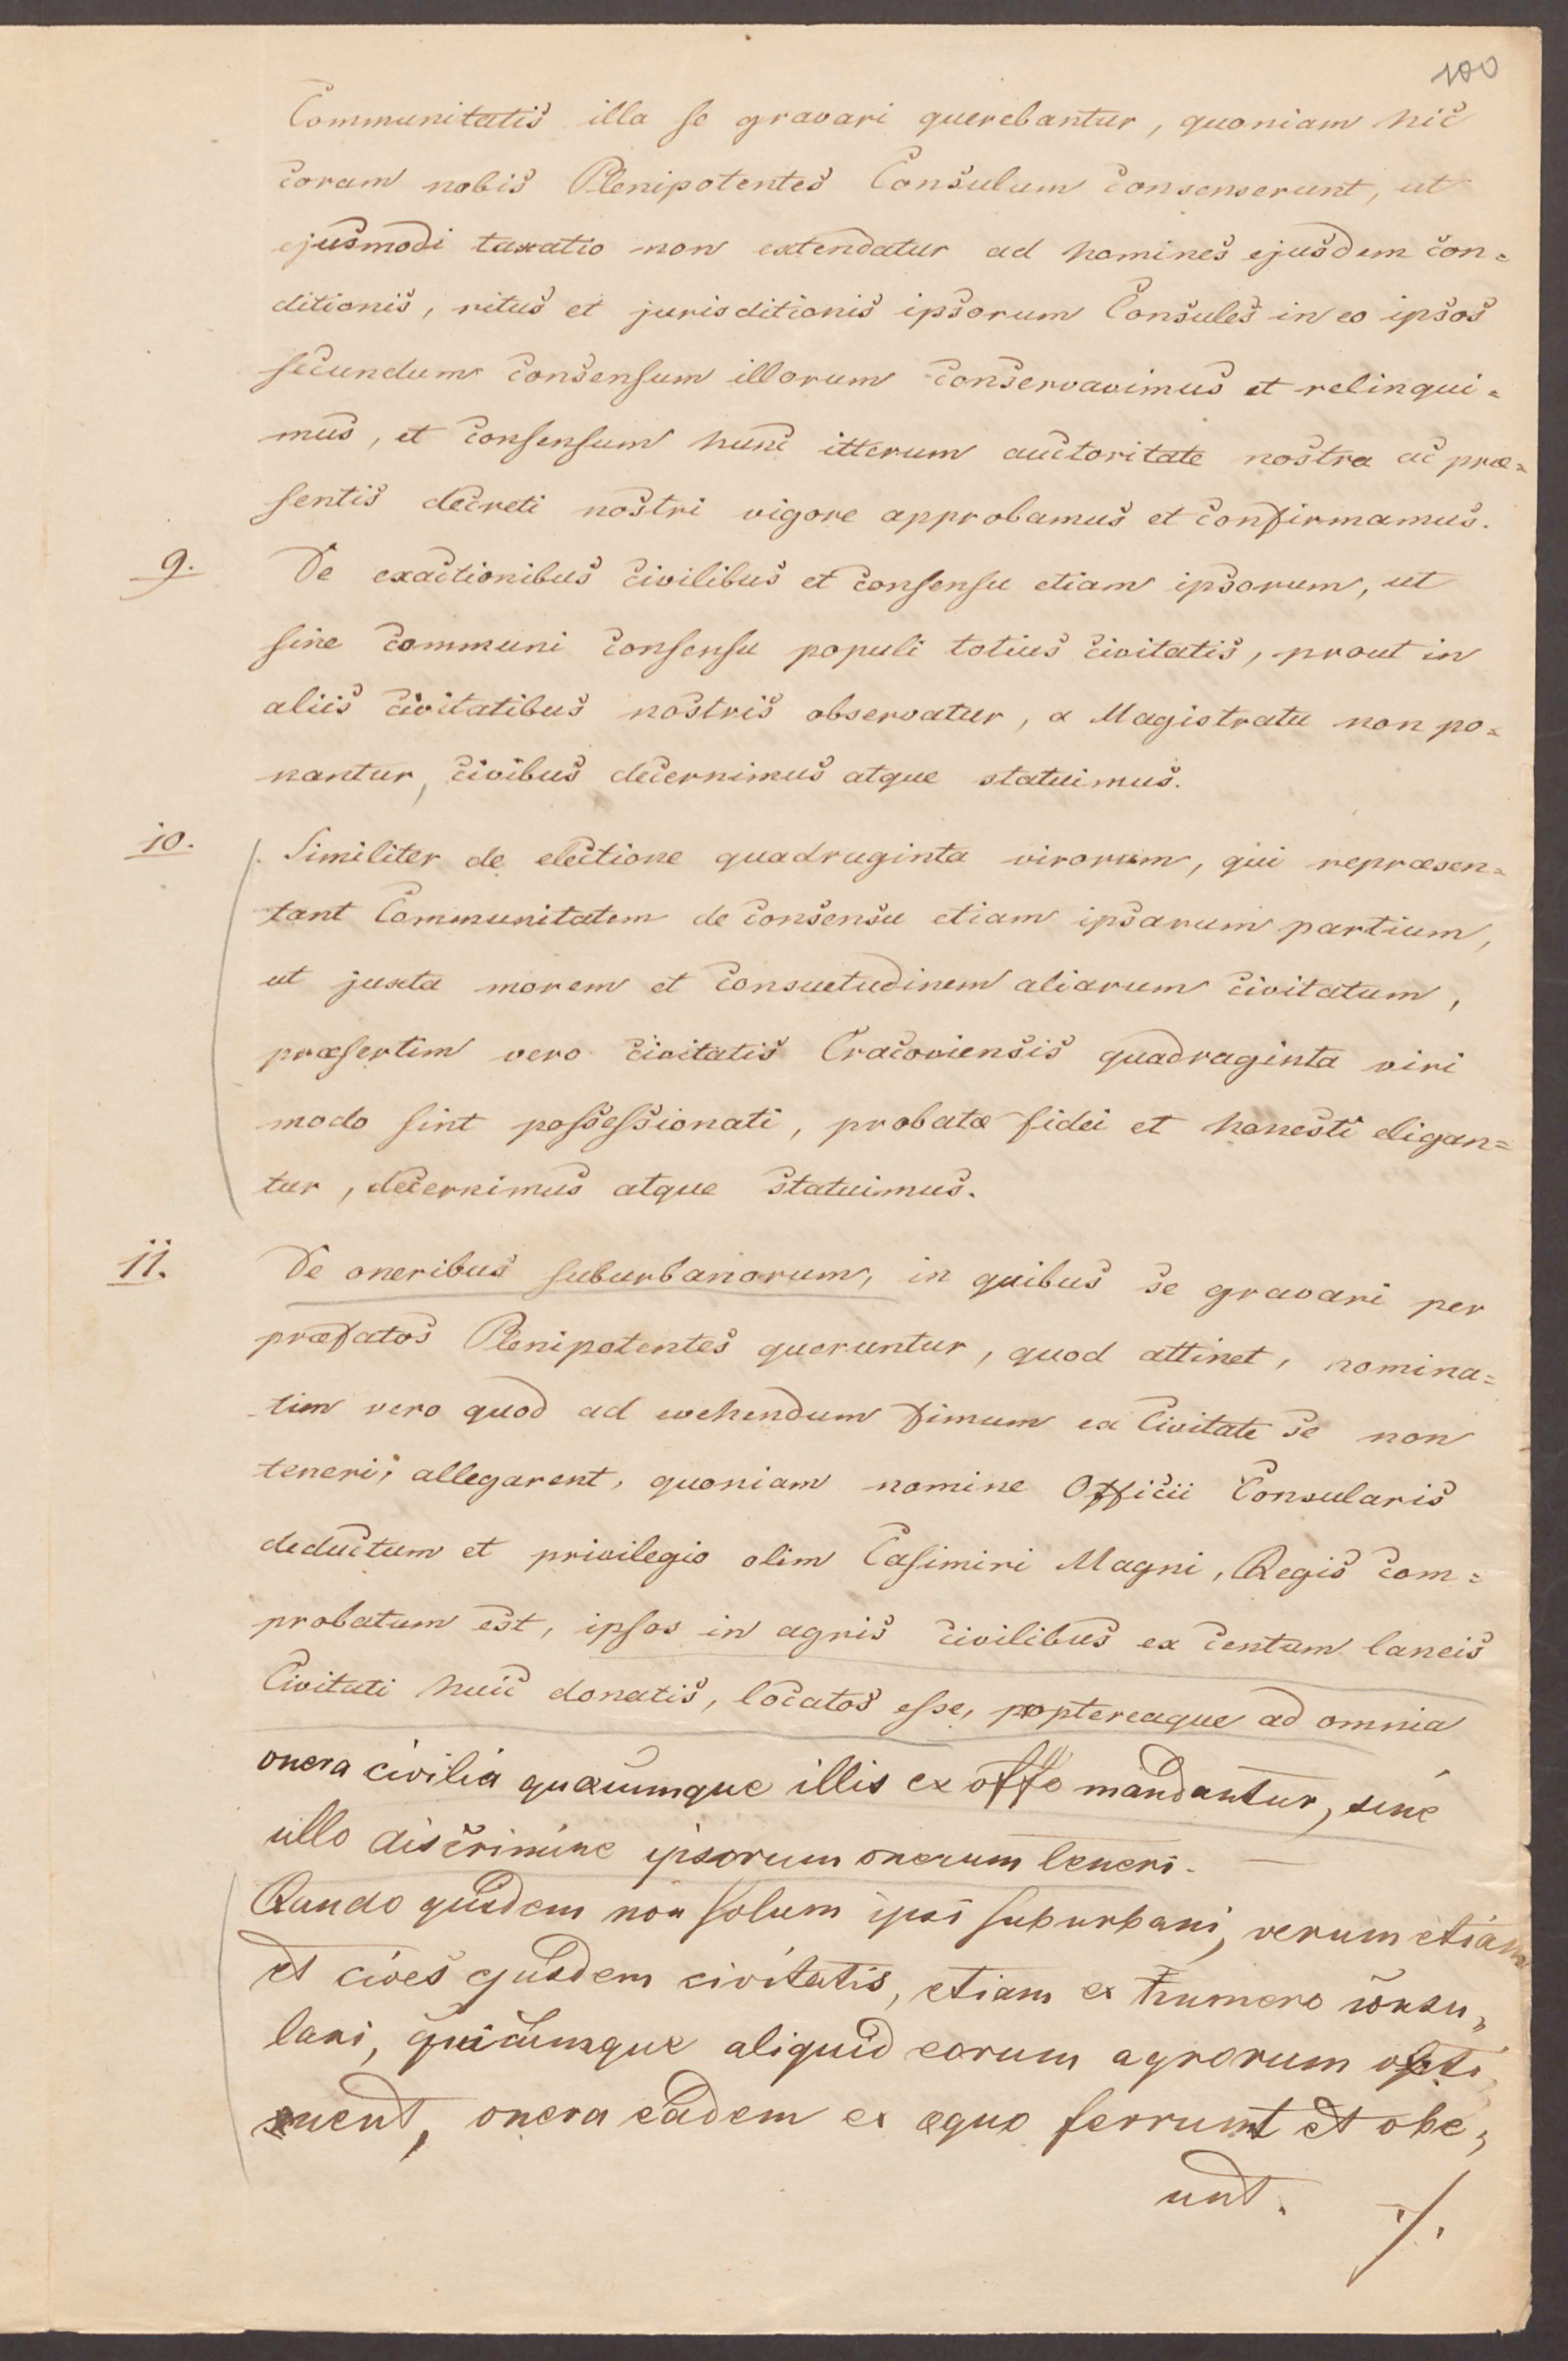 100
Communitatis illa se gravari querebantur, quoniam hic
coram nobis Plenipotentes Consulum consenserunt, ut
ejusmodi taxatio non extendatur ad homines ejusdem con=
ditionis, ritus et jurisditionis ipsorum Consules in eo ipsos
secundum consensum illorum conservavimus et relinqui=
mus, et consensum hunc itterum auctoritate nostra ac præ=
sentis decreti nostri vigore approbamus et confirmamus.
9. De exactionibus civilibus et consensu etiam ipsorum, ut
sine communi consensu populi totius civitatis, prout in
aliis civitatibus nostris observatur, a Magistratu non po=
nantur, civibus decernimus atque statuimus.
10. Similiter de electione quadruginta virorum, qui repræsen=
tant Communitatem de consensu etiam ipsarum partium,
ut juxta morem et consuetudinem aliarum civitatum,
præsertim vero civitatis Cracoviensis quadraginta viri
modo sint possessionati, probatæ fidei et honesti eligan=
tur, decernimus atque statuimus.
11. De oneribus suburbanorum, in quibus se gravari per
præfatos Plenipotentes queruntur, quod attinet, nomina=
tim vero quod ad evehendum fimum ex Civitate se non
teneri, allegarent, quoniam nomine Officii Consularis
deductum et privilegio olim Casimiri Magni, Regis com=
probatum est, ipsos in agris civilibus ex centum laneis
Civitati huic donatis, locatos esse, proptereaque ad omnia
onera civilia quæcumque illis ex offo mandantur, sine
ullo discrimine ipsorum onerum teneri. —
Quando quidem non solum ipsi suburbani, verum etiam
et cives ejusdem civitatis, etiam ex numero consu„
lari, quicumque aliquid eorum agrorum obti„
nent, onera eadem ex æquo ferrunt et obe„
unt. ./.